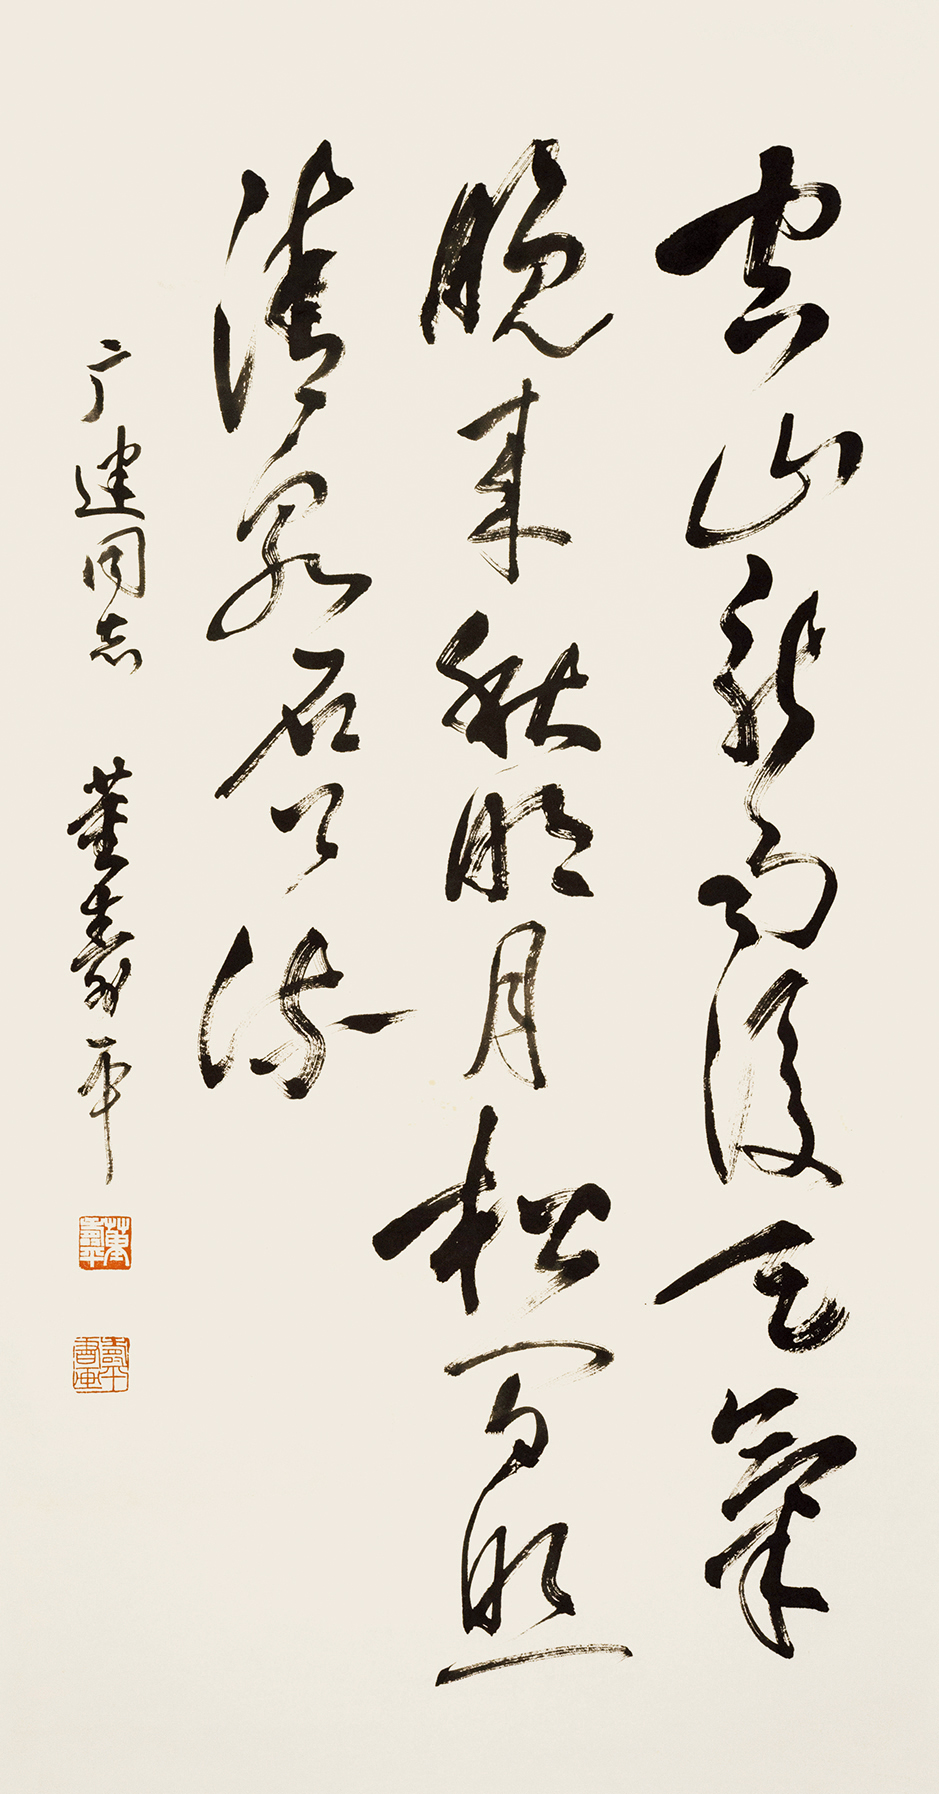 空山新雨後天氣
晚来秋明月松间照
清泉石上流
广建同志 董寿平
董壽平
壽平書画